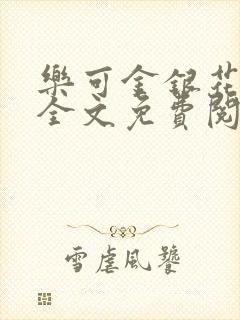 樂可金銀花
全文免費閱
雪虐風饕